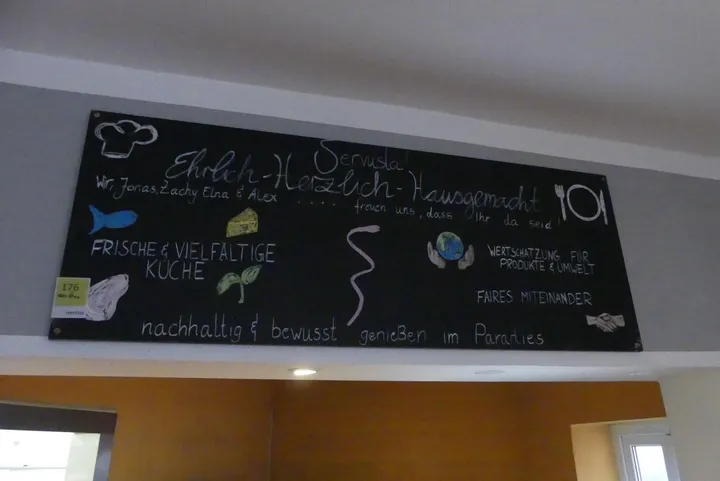 Servusla!
Ehrlich-Herzlich-Hausgemacht
Wir, Jonas, Zachy Elna & Alex ..... freuen uns, dass Ihr da seid!
FRISCHE & VIELFÄLTIGE
KÜCHE
WERTSCHÄTZUNG FÜR
PRODUKTE & UMWELT
FAIRES MITEINANDER
176
nachhaltig & bewusst genießen im Paradies